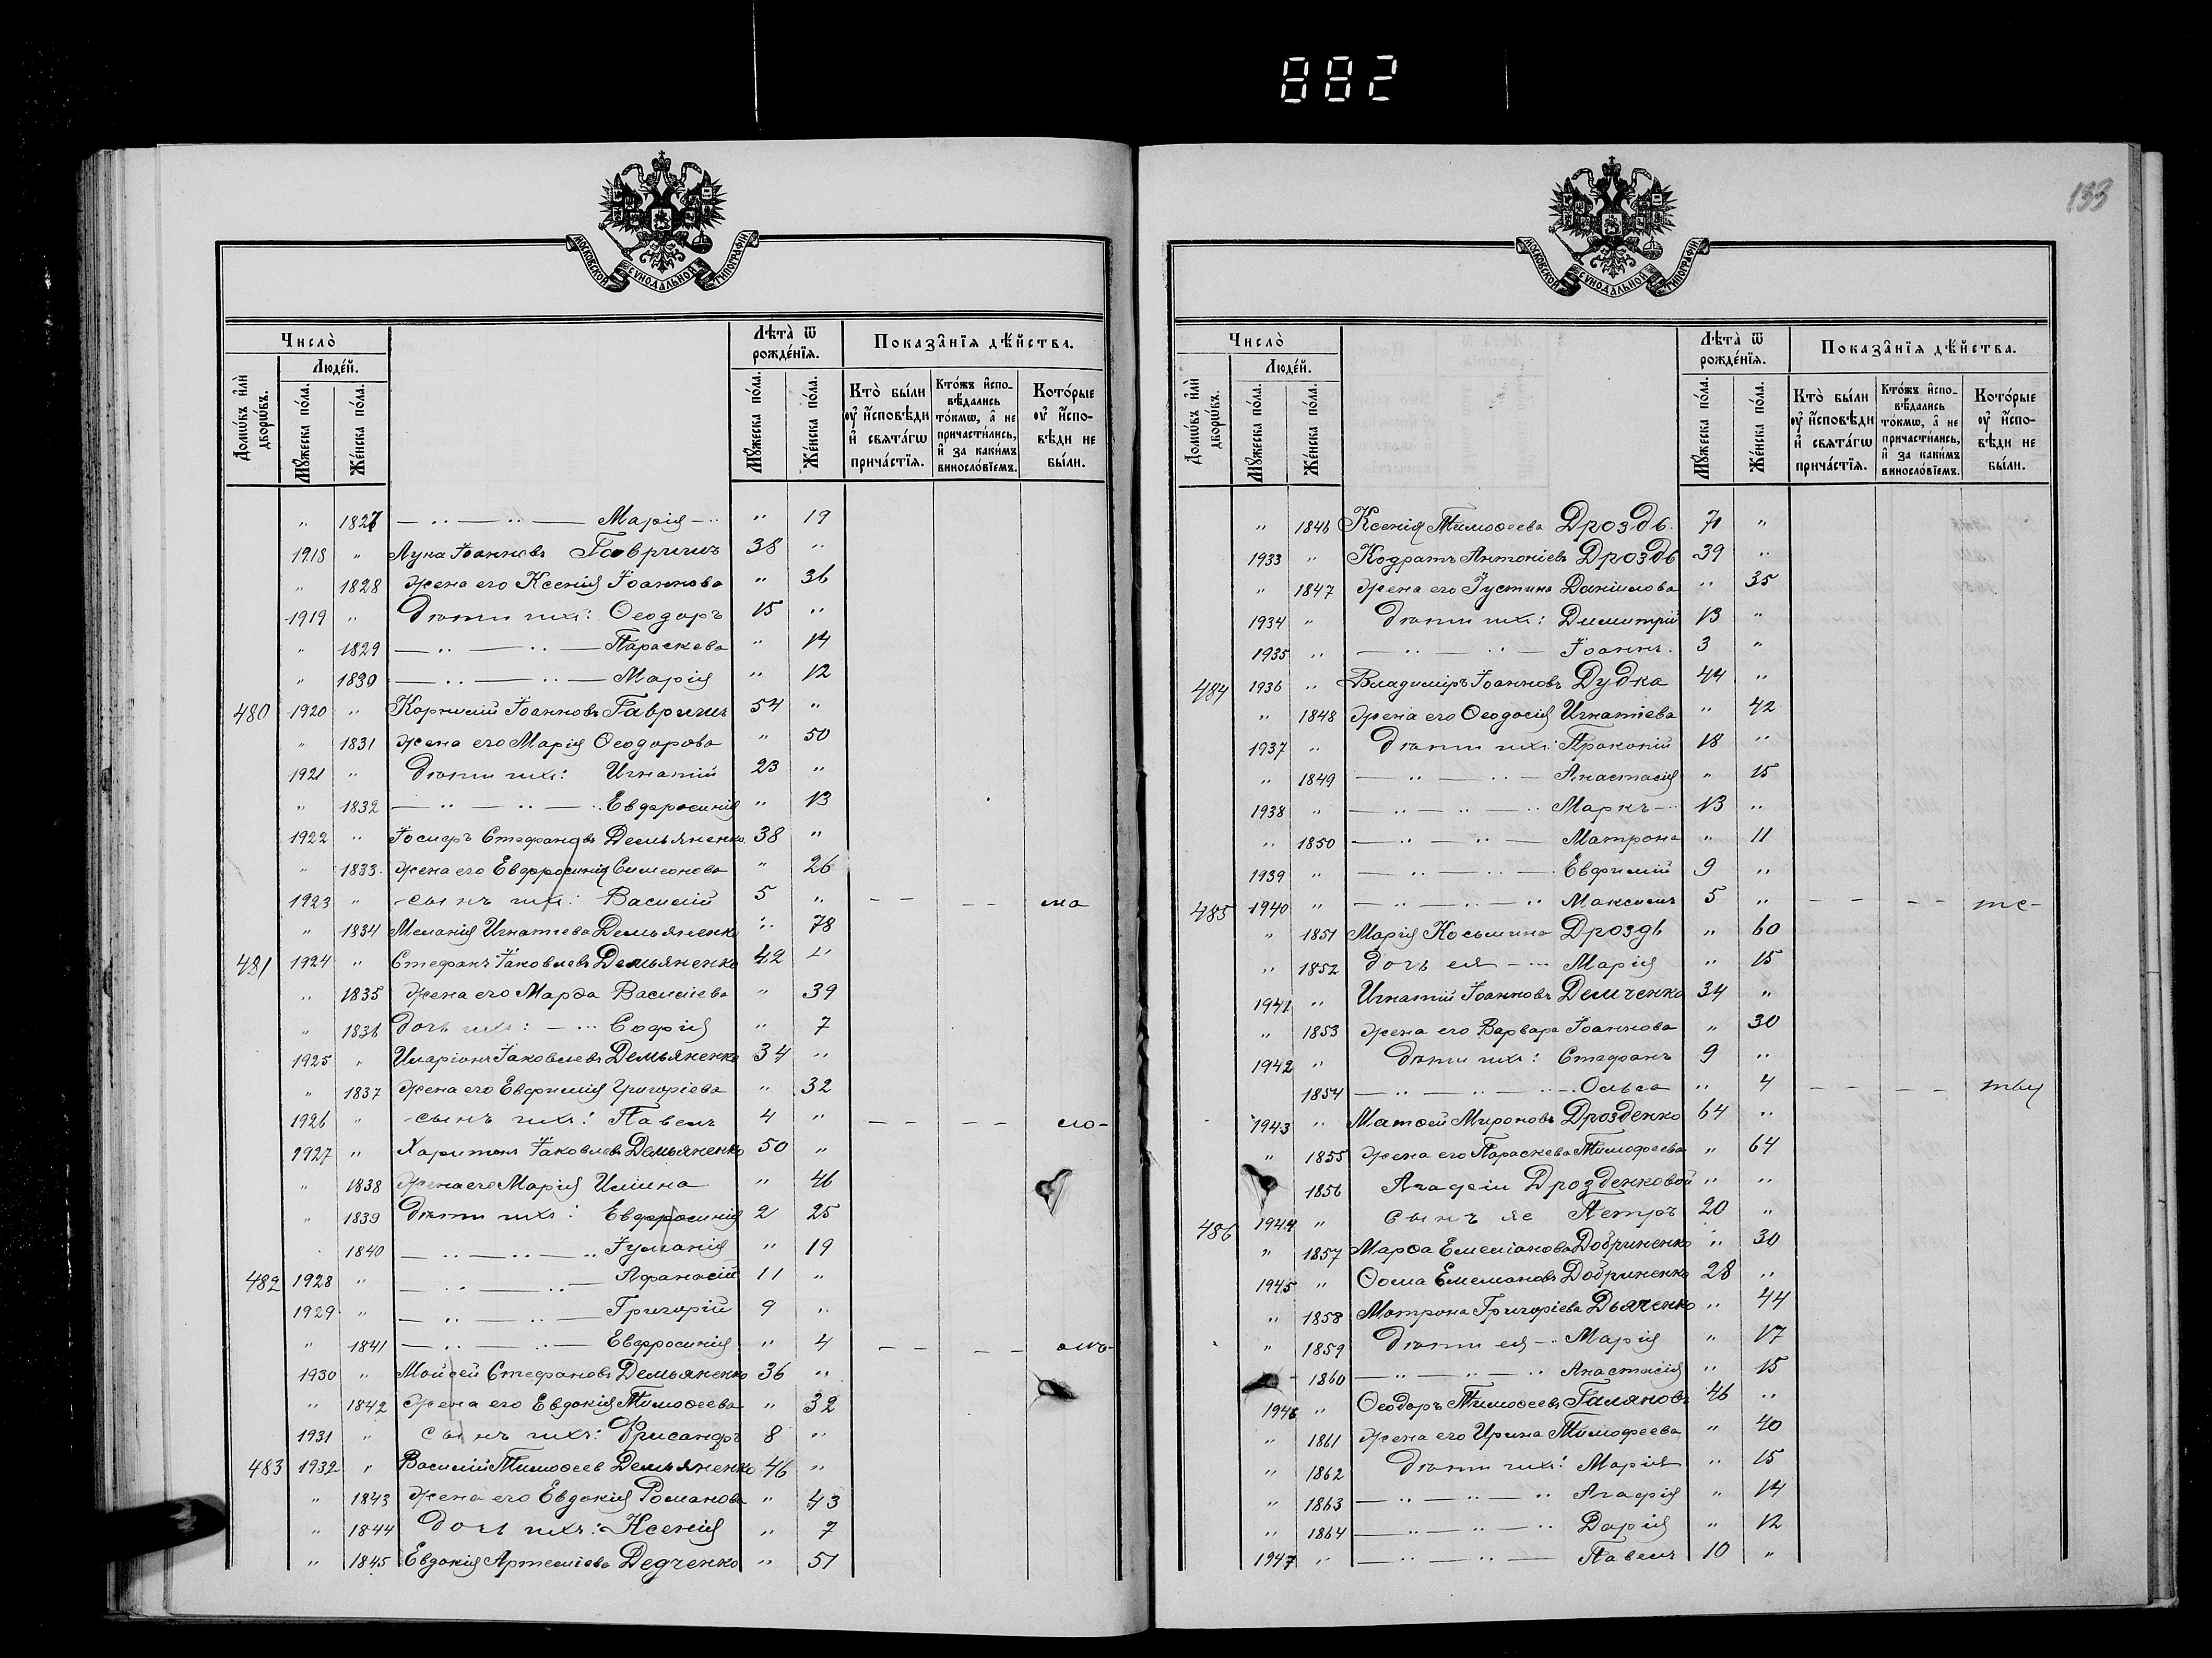 882
133
МОСКОВСКОЙ СѴНОДАЛЬНОЙ ТИПОГРАФІИ
Число̀
Людей.
Домѡвъ и҆лѝ дворѡвъ.
Мꙋжеска пола.
Женска пола.
Лѣта̀ ѿ рожденїя.
Мꙋжеска пола.
Женска пола.
Показанїя дѣйства.
Кто̀ были ᲂу҆ и҆сповѣди и҆ свѧтагѡ причастїя.
Ктожъ и҆спо-вѣдались токмѡ, а҆ не причастились, и҆ за какимъ винословїемъ.
Которые ᲂу҆ и҆спо-вѣди не были.
" 1827 — " — " — Марія — " " 19
1918 " Лука Іоанновъ Гавришъ 38 "
" 1828 жена его Ксенія Іоаннова " 36
1919 " дѣти ихъ: Ѳеодоръ 15 "
" 1829 — " — " — Параскева " 14
" 1830 — " — " — Марія " 12
480 1920 " Корнилій Іоанновъ Гавришъ 54 "
" 1831 жена его Марія Ѳеодорова " 50
1921 " дѣти ихъ: Игнатій 23 "
" 1832 — " — " — Евфросинія " 13
1922 " Іосифъ Стефановъ Демьяненко 38 "
" 1833 жена его Евфросинія Симеонова " 26
1923 " сынъ ихъ: Василій 5 " - - - - ма
" 1834 Меланія Игнатіева Демьяненко " 78
481 1924 " Стефанъ Іаковлевъ Демьяненко 42 "
" 1835 жена его Марѳа Василіева " 39
" 1836 дочь ихъ: — " Софія " 7
1925 " Иларіонъ Іаковлевъ Демьяненко 34 "
" 1837 жена его Евфимія Григоріева " 32
1926 " сынъ ихъ: Павелъ 4 " - - - - ло-
1927 " Харитонъ Іаковлевъ Демьяненко 50 "
" 1838 жена его Марія Иліина " 46
" 1839 дѣти ихъ: Евфросинія 2 25
1840 — " — " — " Іуліанія " 19
482 1928 " — " — " — Афанасій 11 "
1929 " — " — " — Григорій 9 "
" 1841 — " — " — Евфросинія " 4 - - - -
1930 " Мойсей Стефановъ Демьяненко 36 "
" 1842 жена его Евдокія Тимоѳеева " 32
1931 " сынъ ихъ: 8 "
483 1932 " Василій Тимоѳеев Демьяненко 46 "
" 1843 жена его Евдокія Романова " 43
" 1844 дочь ихъ: Ксенія " 7
" 1845 Евдокія Артеміева Дедченко " 51
МОСКОВСКОЙ СѴНОДАЛЬНОЙ ТИПОГРАФІИ
Число̀
Людей.
Домѡвъ и҆лѝ дворѡвъ.
Мꙋжеска пола.
Женска пола.
Лѣта̀ ѿ рожденїя.
Мꙋжеска пола.
Женска пола.
Показанїя дѣйства.
Кто̀ были ᲂу҆ и҆сповѣди и҆ свѧтагѡ причастїя.
Ктожъ и҆спо-вѣдались токмѡ, а҆ не причастились, и҆ за какимъ винословїемъ.
Которые ᲂу҆ и҆спо-вѣди не были.
" 1846 Ксенія Тимоѳеева Дроздь. 71 "
1933 " Кодратъ Антоніевъ Дроздь 39 "
" 1847 жена его Іустина Даніилова " 35
1934 " дѣти ихъ: Димитрій 13 "
1935 " — " — " — Іоаннъ. 3 "
484 1936 " Владиміръ Іоанновъ Дудка 44 "
" 1848 жена его Ѳеодосія Игнатіева " 42
1937 " дѣти ихъ: Прокопій 18 "
" 1849 — " — " — Анастасія " 15
1938 " — " — " — " Маркъ — " 13 "
" 1850 — " — " — Матрона " 11
1939 " — " — " — Евфимій 9 "
485 1940 " — " — " — " Максимъ 5 " - - - - те-
" 1851 Марія Косьмина Дроздь " 60
" 1852 дочь ея — " Марія " 15
1941 " Игнатій Іоанновъ Демченко 34 "
" 1853 жена его Варвара Іоаннова " 30
1942 " дѣти ихъ: Стефанъ 9 "
1854 — " — " — " — Ольга " 4 - - - -
1943 " Матѳей Мироновъ Дрозденко 64 "
" 1855 жена его Параскева Тимофеева " 64
1856 Агафіи Дрозденковой " "
486 1944 " сынъ яе Петръ 20 "
" 1857 Марѳа Емеліанова Добриненко " 30
1945 " Ѳома Емеліановъ Добриненко 28 "
" 1858 Матрона Григоріева Дьяченко " 44
" 1859 дѣти ея — " Марія " 17
1860 — " — " — " Анастасія " 15
1946 " Ѳеодоръ Тимоѳеевъ Галяновъ 46 "
" 1861 жена его Ирина Тимофеева " 40
" 1862 дѣти ихъ: Марія " 15
" 1863 — " — " — " Агафія " 14
" 1864 — " — " — " Дарія " 12
1947 " — " — " — Павелъ 10 "